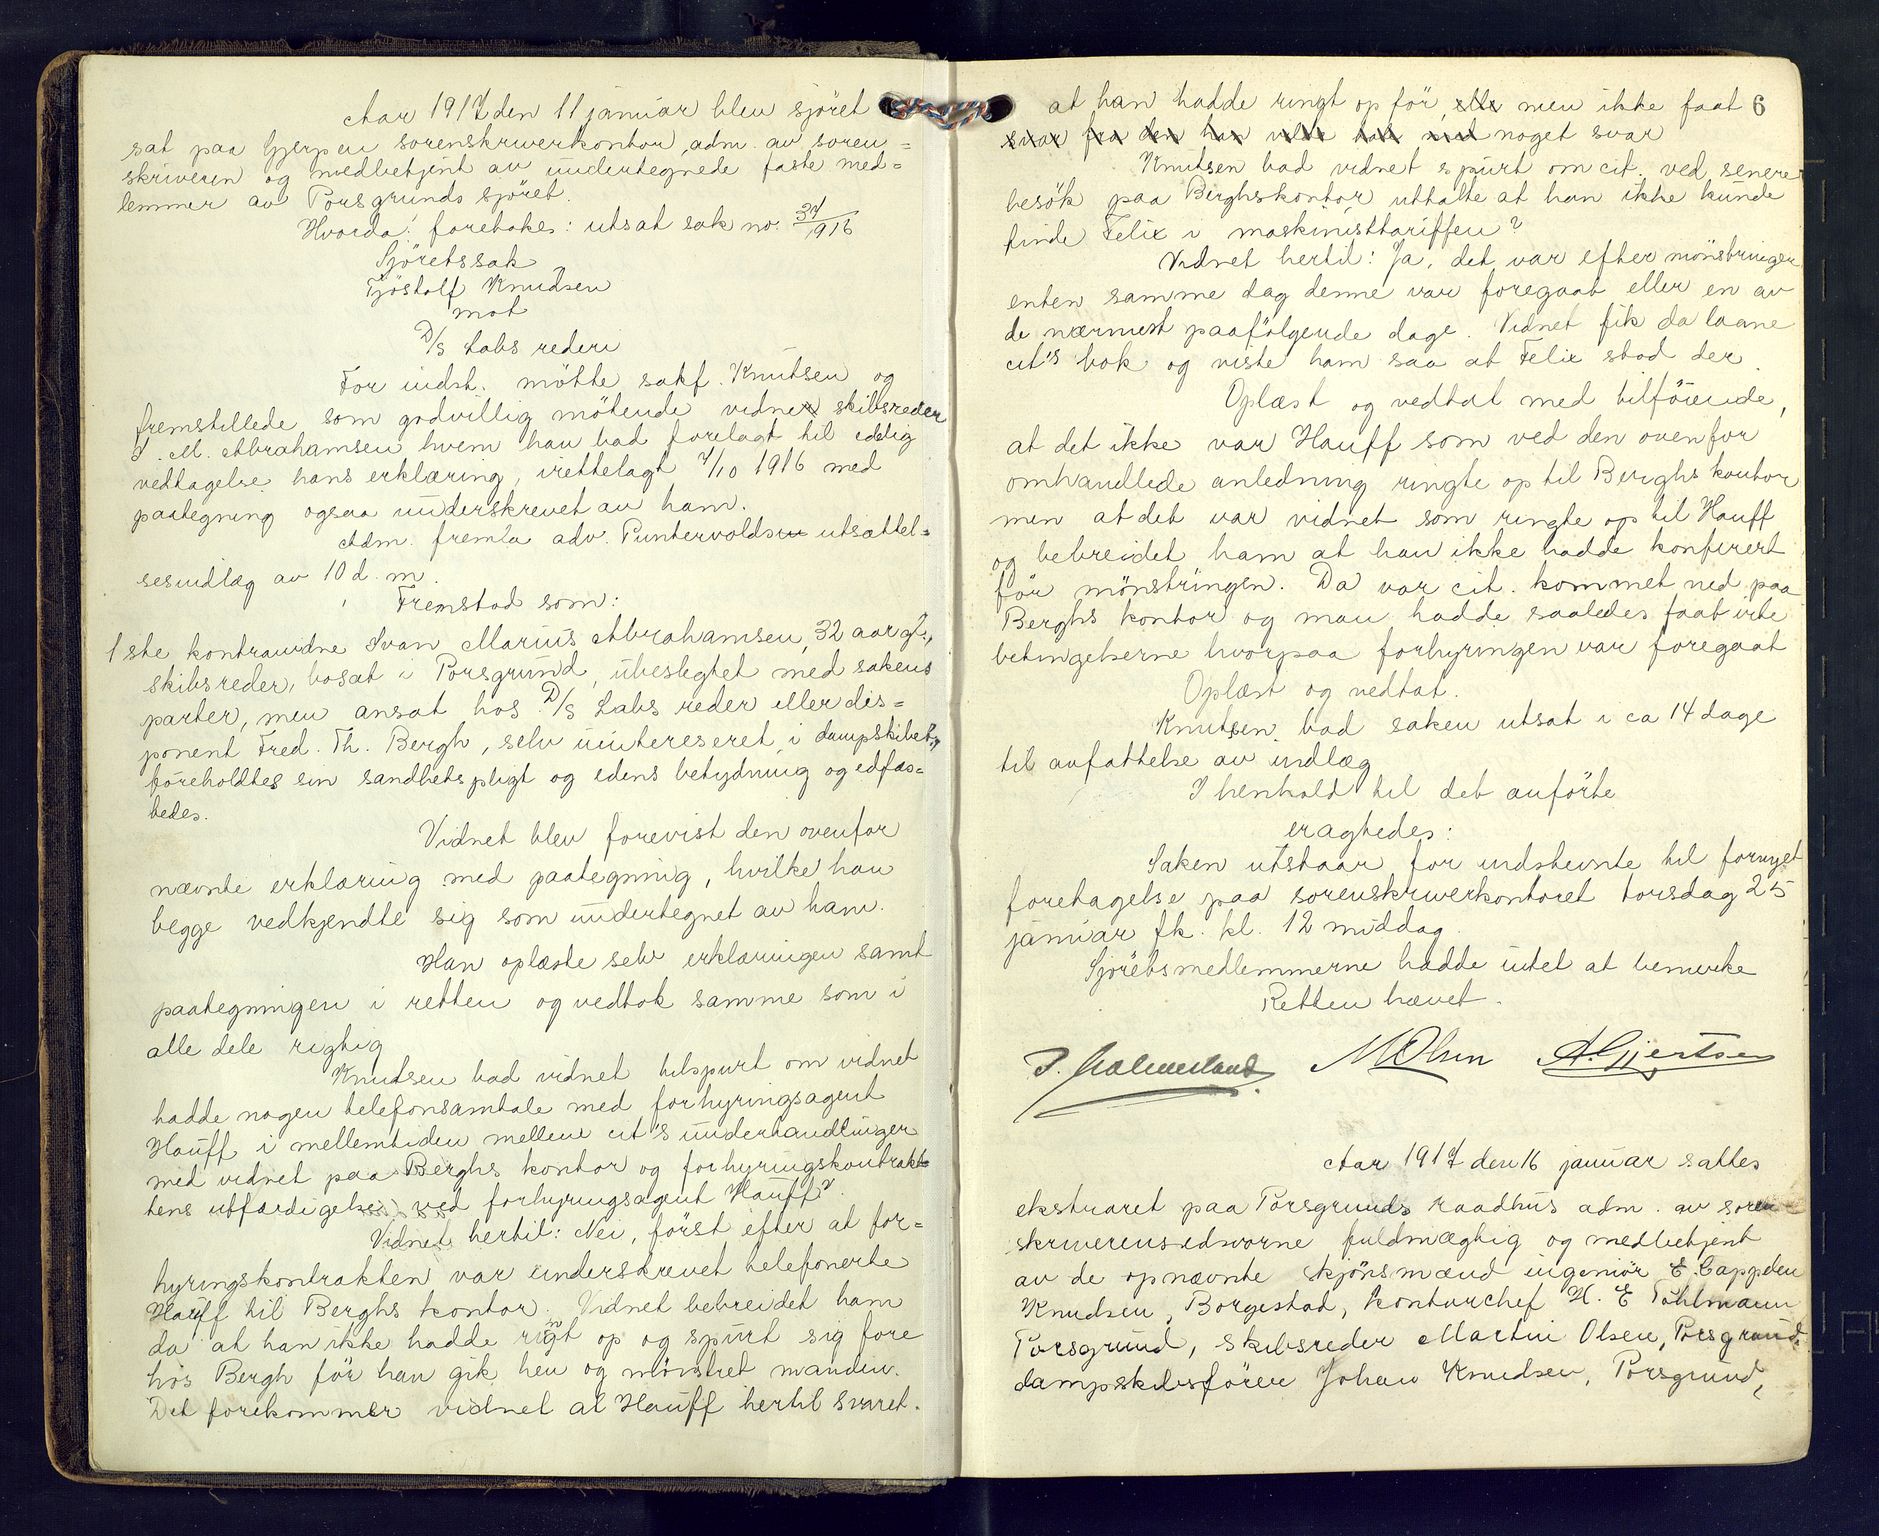 Aar 1917 den 11 januar blev sjöret
sat paa Gjerpen sorenskriverkontor, adm. av soren=
skriveren og medbetjent av undertegnede faste med=
lemmer av Porsgrunds sjöret.
Hvorda: foretokes: utsat sak no. 37/1916
Sjöretssak
Tjöstolf Knudsen
mot
D/S Labs rederi
For indst. mötte sakf. Knutsen og
fremstillede som godvillig mötende vidne skibsreder
I. M. Abrahamsen hvem han bad forelagt til edelig
vedtagelse hans erklæring, irettelagt 7/10 1916 med
paategning ogsaa underskrevet av ham.
Adm. fremla adv. Puntervolds utsættel=
sesindlæg av 10 d. m.
Fremstod som:
1ste kontravidne Ivan Marius Abrahamsen, 32 aar gl.,
skibsreder, bosat i Porsgrund, ubeslegtet med sakens
parter, men ansat hos D/S Labs reder eller dis=
ponent Fred. Th. Bergh, selv uintereseret i dampskibet,
foreholdtes sin sandhetspligt og edens betydning og edfæs=
tedes.
Vidnet blev forevist den ovenfor
nævnte erklæring med paategning, hvilke han
begge vedkjendte sig som undertegnet av ham.
Han oplæste selv erklæringen samt
paategningen i retten og vedtok samme som i
alle dele rigtig
Knudsen bad vidnet tilspurt om vidnet
hadde nogen telefonsamtale med forhyringsagent
Hauff i mellemtiden mellem cit's underhandlinger
med vidnet paa Berghs kontor og forhyringskontrak=
tens utfærdigelse ved forhyringsagent Hauff?
Vidnet hertil: Nei, först efter at for=
hyringskontrakten var underskrevet telefonerte
Hauff til Berghs kontor. Vidnet bebreidet ham
da at han ikke hadde ringt op og spurt sig fore
hos Bergh för han gik hen og mönstret manden.
Det forekommer vidnet at Hauff hertil svaret.
6
at han hadde ringt op för, men ikke faat
svar fra den han vilde tale med noget svar
Knutsen bad vidnet spurt om cit. ved senere
besök paa Berghskontor uttalte at han ikke kunde
finde Felix i maskinisttariffen?
Vidnet hertil: Ja, det var efter mönstringen
enten samme dag denne var foregaat eller en av
de nærmest paafölgende dage. Vidnet fik da laane
cit's bok og viste ham saa at Felix stod der.
Oplæst og vedtat med tilföiende,
at det ikke var Hauff som ved den ovenfor
omhandlede anledning ringte op til Berghs kontor
men at det var vidnet som ringte op til Hauff
og bebreidet ham at han ikke hadde konferert
för mönstringen. Da var cit. kommet ned paa
Berghs kontor og man hadde saaledes faat vite
betingelserne hvorpaa forhyringen var foregaat
Oplæst og vedtat.
Knutsen bad saken utsat i ca 14 dage
til avfattelse av indlæg
I henhold til det anförte
eragtedes:
Saken utstaar for indstevnte til fornyet
foretagelse paa sorenskriverkontoret torsdag 25
januar fk. kl. 12 middag.
Sjöretsmedlemmerne hadde intet at bemerke
Retten hævet.
MOlsen A. Gjertsen
Aar 1917 den 16 januar sattes
ekstraret paa Porsgrunds raadhus adm. av soren
skriverens edsvorne fuldmægtig og medbetjent
av de opnævnte skjönsmænd ingeniör E. Cappelen
Knudsen, Borgestad, kontorchef H. E. Pöhlmann
Porsgrund, skibsreder Martin Olsen, Porsgrund,
dampskibsförer Johan Knudsen, Porsgrund,